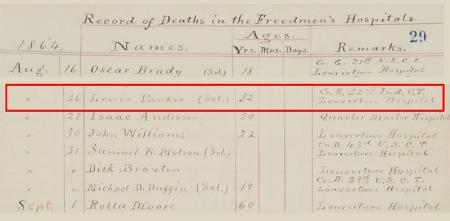 Record of Deaths in the Freedmen's Hospitals.
29
1864. Names. Ages. Remarks.
Yrs. Mos. Days.
Co. G. 27th U.S.C.T.
Aug. 16 Oscar Brady (Sol.) 18 Louverture Hospital
Co. B. Ind. C.T.
" 26 Lewis Parker (Sol.) 32 Louverture Hospital
" 27 Isaac Anderson 20 Quarter Master Hospital
" 30 John Williams 22 Louverture Hospital
Co. D. 43d U.S.C.T.
" 31 Samuel B. (Sol.) Louverture Hospital
" Dick Braxton Louverture Hospital
Co. D. 29th U.S.C.T.
" Michael D. Duffin (Sol.) 19 Louverture Hospital
Sept. 1 Rolla Moore 60 Louverture Hospital